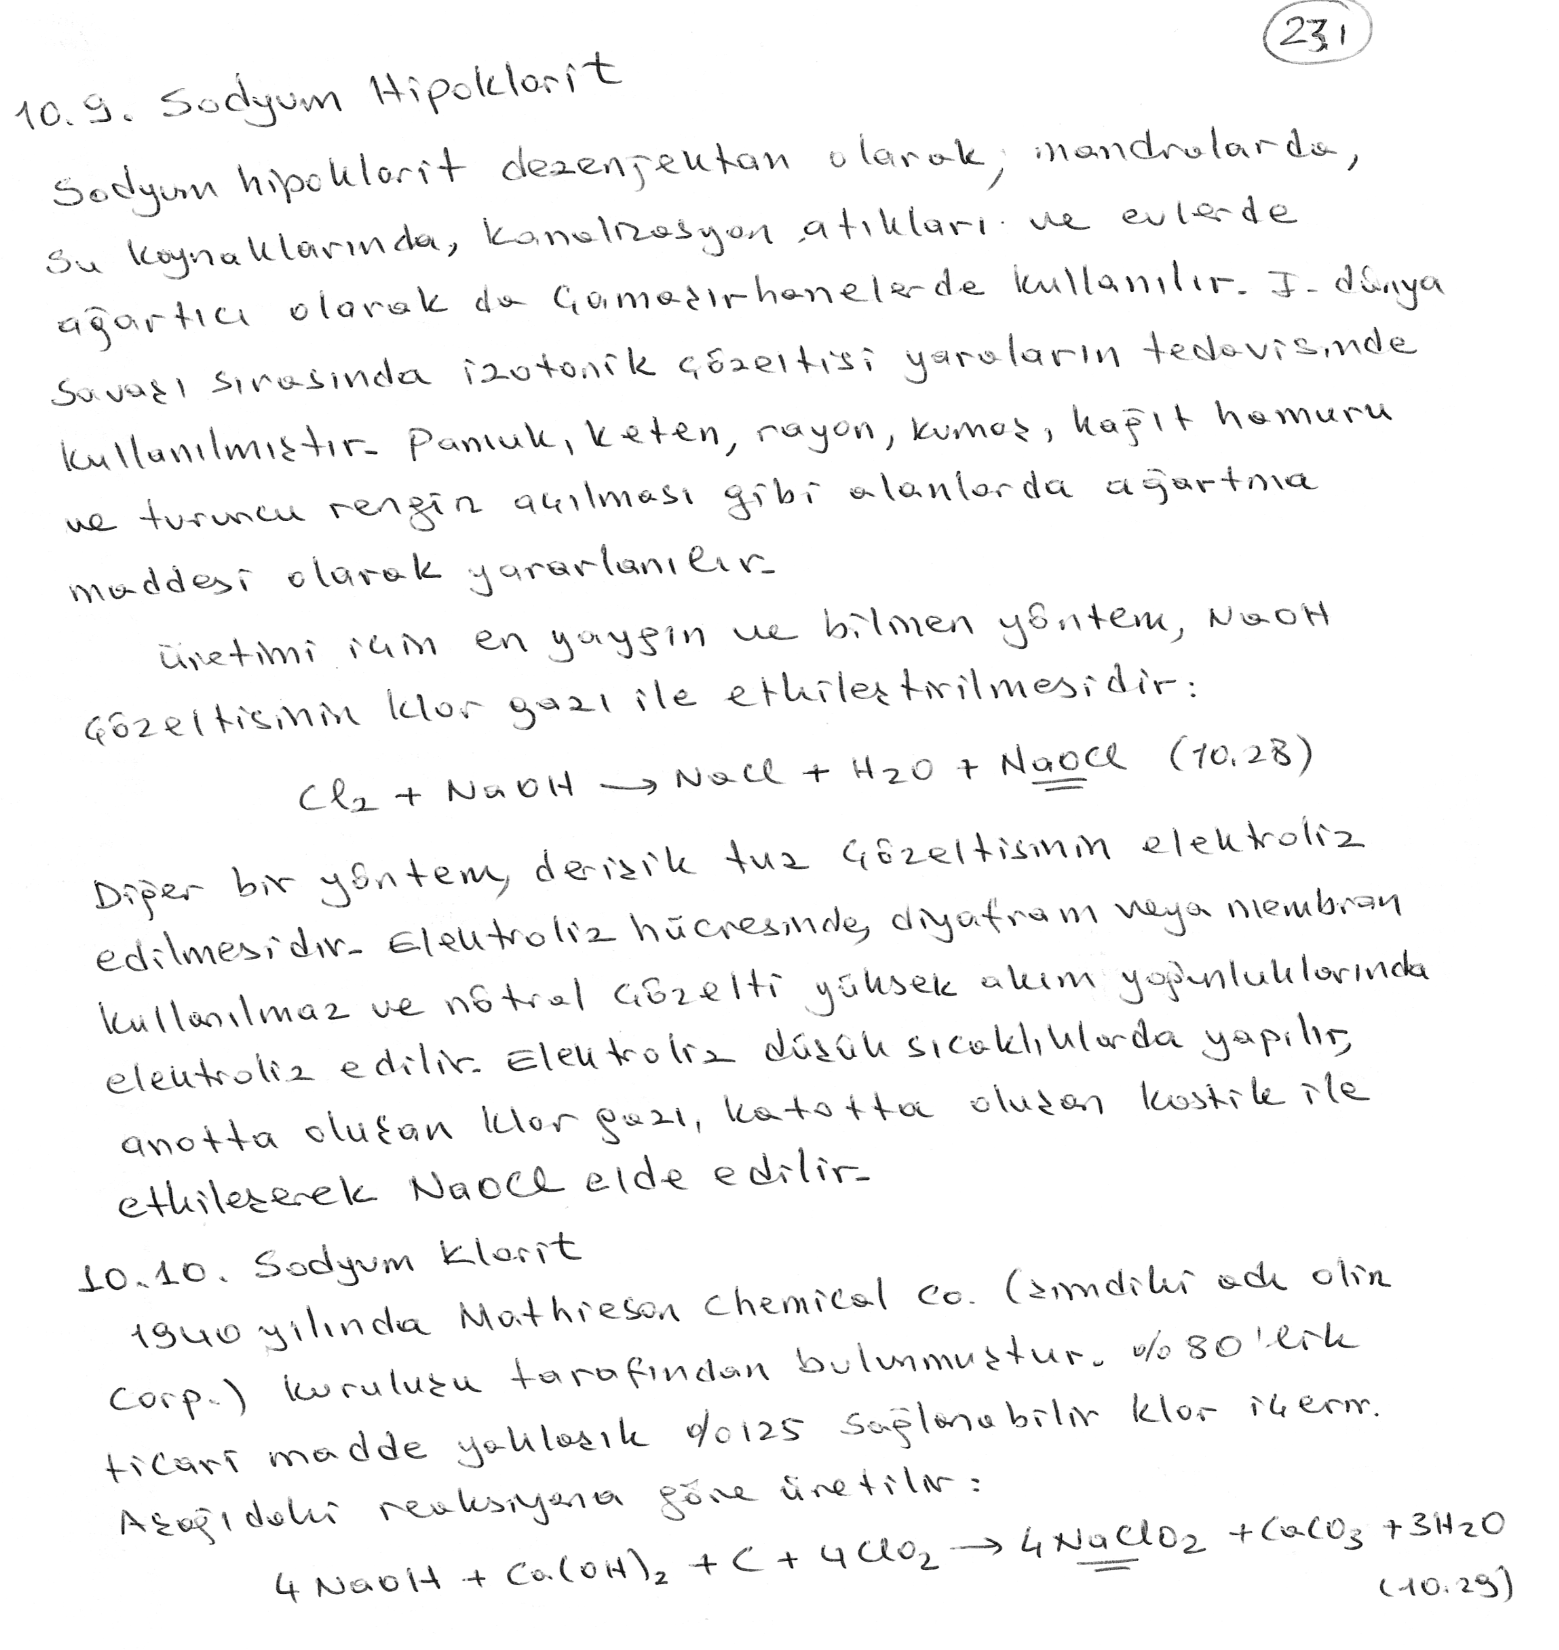 231
10.9. Sodyum Hipoklorit
Sodyum hipoklorit dezenfektan olarak, mandralarda,
su kaynaklarında, kanalizasyon atıkları ve evlerde
ağartıcı olarak da çamaşırhanelerde kullanılır. I. dünya
savaşı sırasında izotonik çözeltisi yaraların tedavisinde
kullanılmıştır. Pamuk, keten, rayon, kumaş, kağıt hamuru
ve turuncu rengin açılması gibi alanlarda ağartma
maddesi olarak yararlanılır.
üretimi için en yaygın ve bilinen yöntem, NaOH
çözeltisinin klor gazı ile etkileştirilmesidir:
Cl₂ + NaOH → NaCl + H₂O + NaOCl (10.28)
Diğer bir yöntem, derişik tuz çözeltisinin elektroliz
edilmesidir. Elektroliz hücresinde, diyafram veya membran
kullanılmaz ve nötral çözelti yüksek akım yoğunluklarında
elektroliz edilir. Elektroliz düşük sıcaklıklarda yapılır,
anotta oluşan klor gazı, katotta oluşan kostik ile
etkileşerek NaOCl elde edilir.
10.10. Sodyum Klorit
1940 yılında Mathieson Chemical Co. (şimdiki adı Olin
Corp.) kuruluşu tarafından bulunmuştur. %80'lik
ticari madde yaklaşık %125 sağlanabilir klor içerir.
Aşağıdaki reaksiyona göre üretilir:
4 NaOH + Ca(OH)₂ + C + 4ClO₂ → 4NaClO₂ + CaCO₃ + 3H₂O
(10.29)